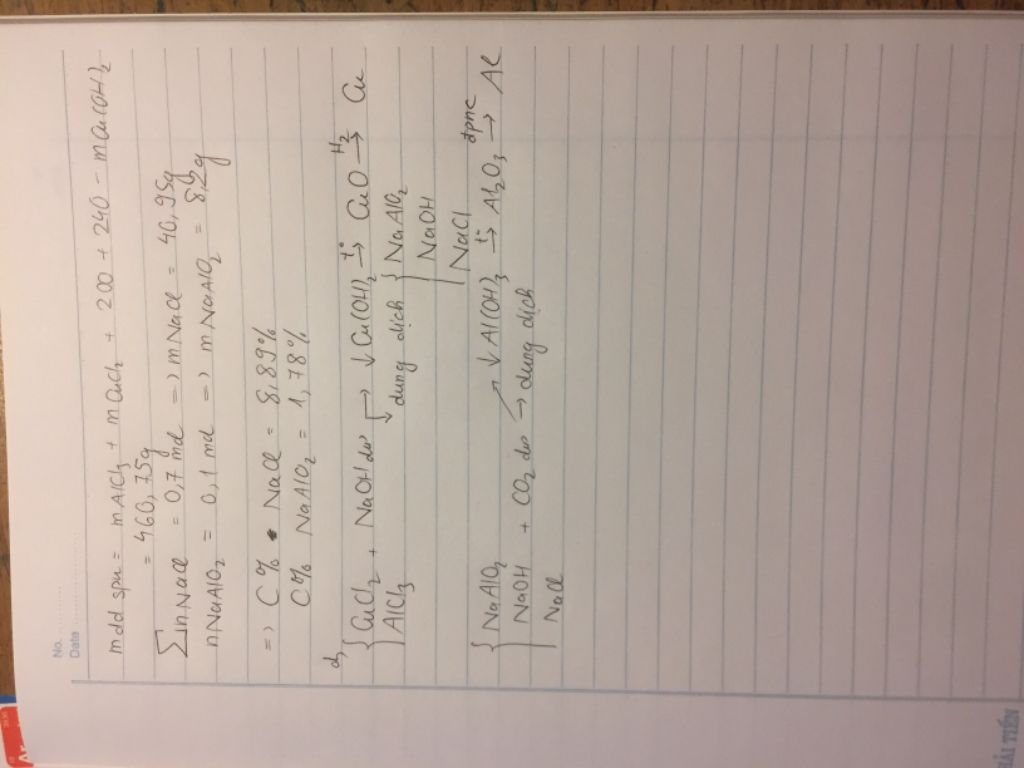 No. ............
Date ............
mdd spư = mAlCl3 + mCuCl2 + 200 + 240 - mCu(OH)2
= 460,75g
∑nNaCl = 0,7 mol => mNaCl = 40,95g
nNaAlO2 = 0,1 mol => mNaAlO2 = 8,2g
=> C% NaCl = 8,89%
CM% NaAlO2 = 1,78%
d,
{ CuCl2 + NaOH dư → ↓ Cu(OH)2 →t° CuO →H2 Cu
AlCl3 dung dịch { NaAlO2
NaOH
NaCl
{ NaAlO2 → ↓ Al(OH)3 →t° Al2O3 →đpnc Al
NaOH + CO2 dư → dung dịch
NaCl
HẢI TIẾN